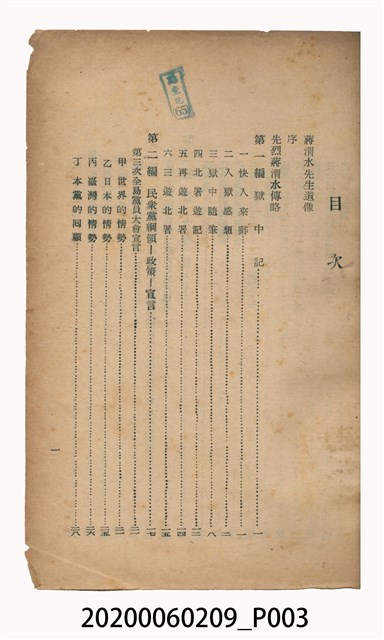 目次
蔣渭水先生遺像
序
先烈蔣渭水傳略
第一編 獄中記……一
一 快入來辭……一
二 入獄感想……二
三 獄中隨筆……八
四 北署遊記……
五 再遊北署……
六 三遊北署……
第二編 民衆黨綱領－政策－宣言……
第三次全島黨員大會宣言……
甲 世界的情勢……
乙 日本的情勢……
丙 臺灣的情勢……
丁 本黨的回顧……
一
20200060209_P003